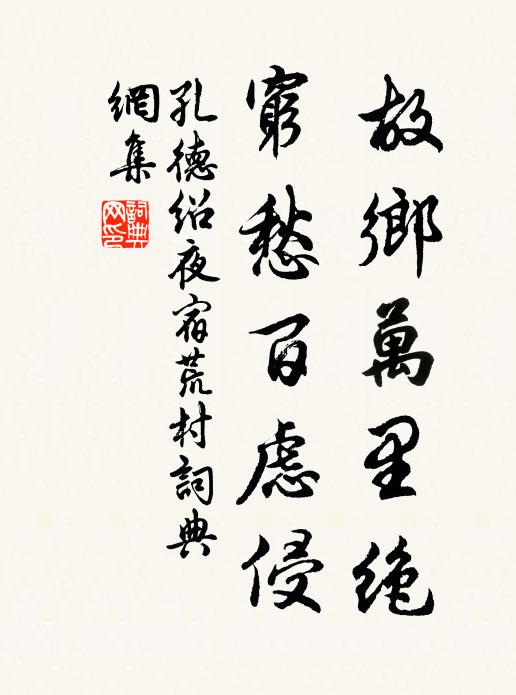 故鄉萬里絶
窮愁百慮侵
孔德紹夜宿荒村詞典
網集
詞典網印